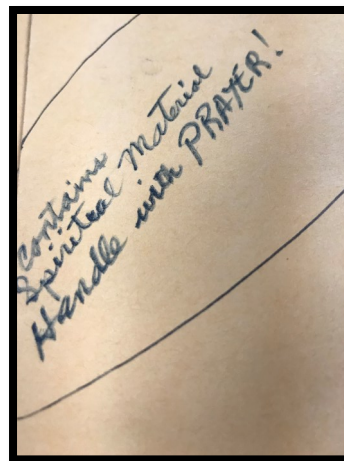 Contains
Spiritual Material
Handle with PRAYER!